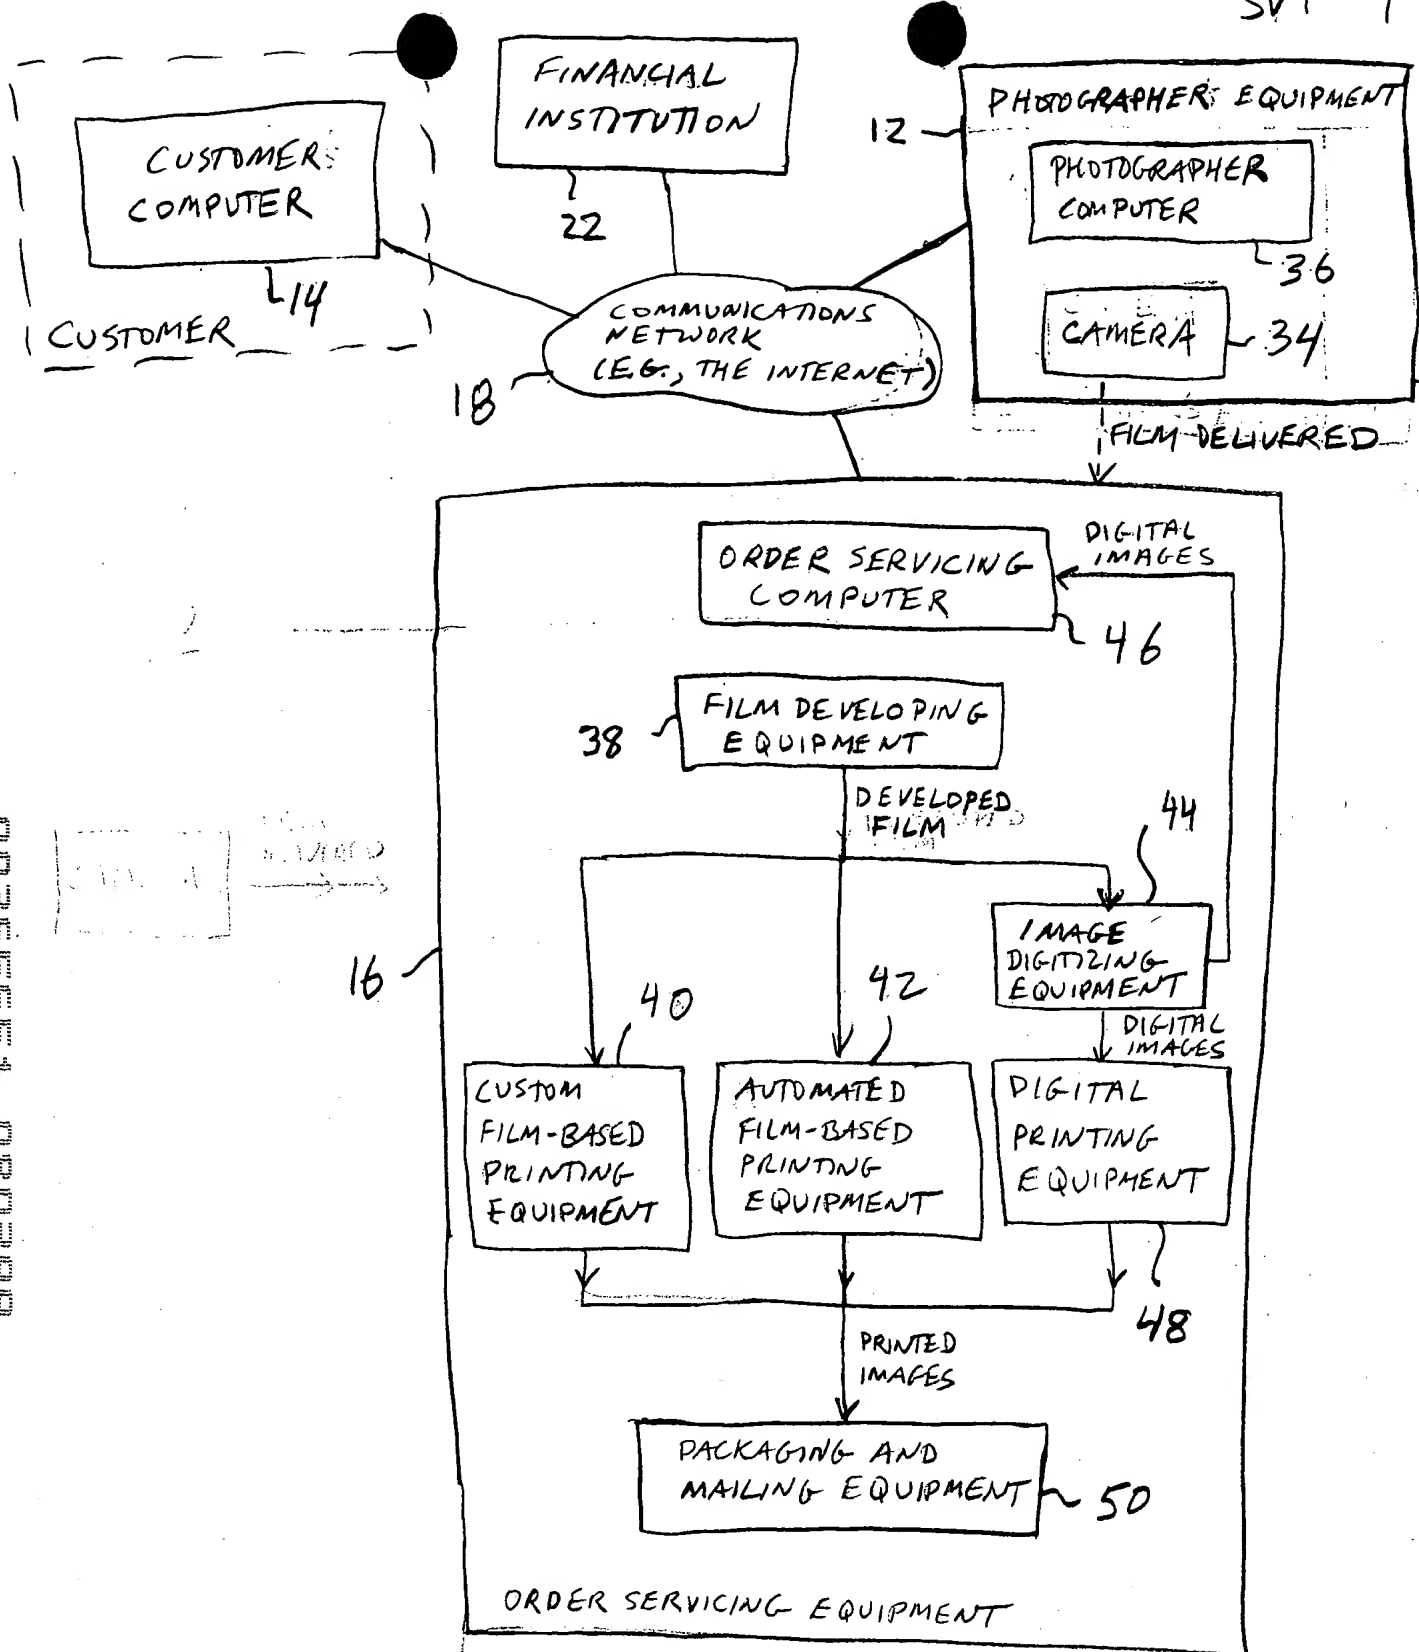 FINANCIAL
INSTITUTION
22
CUSTOMER
COMPUTER
14
CUSTOMER
PHOTOGRAPHER EQUIPMENT
12
PHOTOGRAPHER
COMPUTER
36
CAMERA
34
COMMUNICATIONS
NETWORK
(E.G., THE INTERNET)
18
FILM DELIVERED
ORDER SERVICING
COMPUTER
46
DIGITAL
IMAGES
FILM DEVELOPING
EQUIPMENT
38
DEVELOPED
FILM
44
IMAGE
DIGITIZING
EQUIPMENT
16
40
42
DIGITAL
IMAGES
CUSTOM
FILM-BASED
PRINTING
EQUIPMENT
AUTOMATED
FILM-BASED
PRINTING
EQUIPMENT
DIGITAL
PRINTING
EQUIPMENT
48
PRINTED
IMAGES
PACKAGING AND
MAILING EQUIPMENT
50
ORDER SERVICING EQUIPMENT